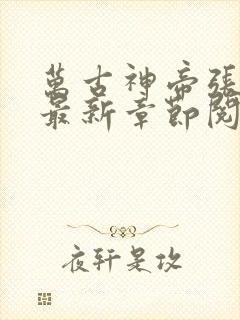 萬古神帝張
最新章節閱
夜轩是攻